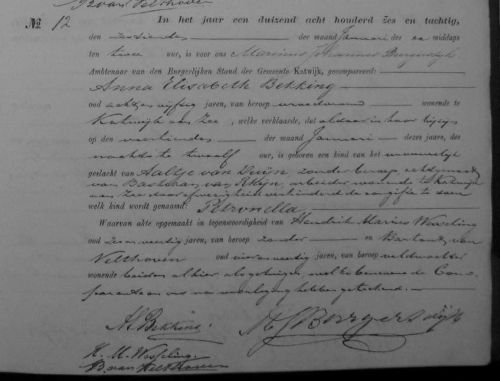 B. van Velthoven
No 12
In het jaar een duizend acht honderd zes en tachtig,
den zestienden der maand Januari des na middags
ten twee ure, is voor ons Marinus Johannes Burgersdijk
Ambtenaar van den Burgerlijken Stand der Gemeente Katwijk, gecompareerd:
Anna Elisabeth Bekking
oud achtenvijftig jaren, van beroep vroedvrouw wonende te
Katwijk aan Zee, welke verklaarde, dat aldaar in haar bijzijn
op den veertienden der maand Januari dezes jaars, des
nachts te twaalf ure, is geboren een kind van het vrouwelijk
geslacht van Aaltje van Duijn zonder beroep, echtgenoote
van Bastiaan van Rhijn, arbeider wonende te Katwijk
aan Zee
welk kind wordt genaamd: Petronella
Waarvan akte opgemaakt in tegenwoordigheid van Hendrik Marius Wesseling
oud jaren, van beroep zonder en Barend van
Velthoven oud jaren, van beroep veldwachter
wonende beiden alhier als getuigen welke benevens de Com-
parante en ons na voorlezing hebben geteekend.
A E Bekking.
M J Burgersdijk
H. M. Wesseling
B. van Velthoven